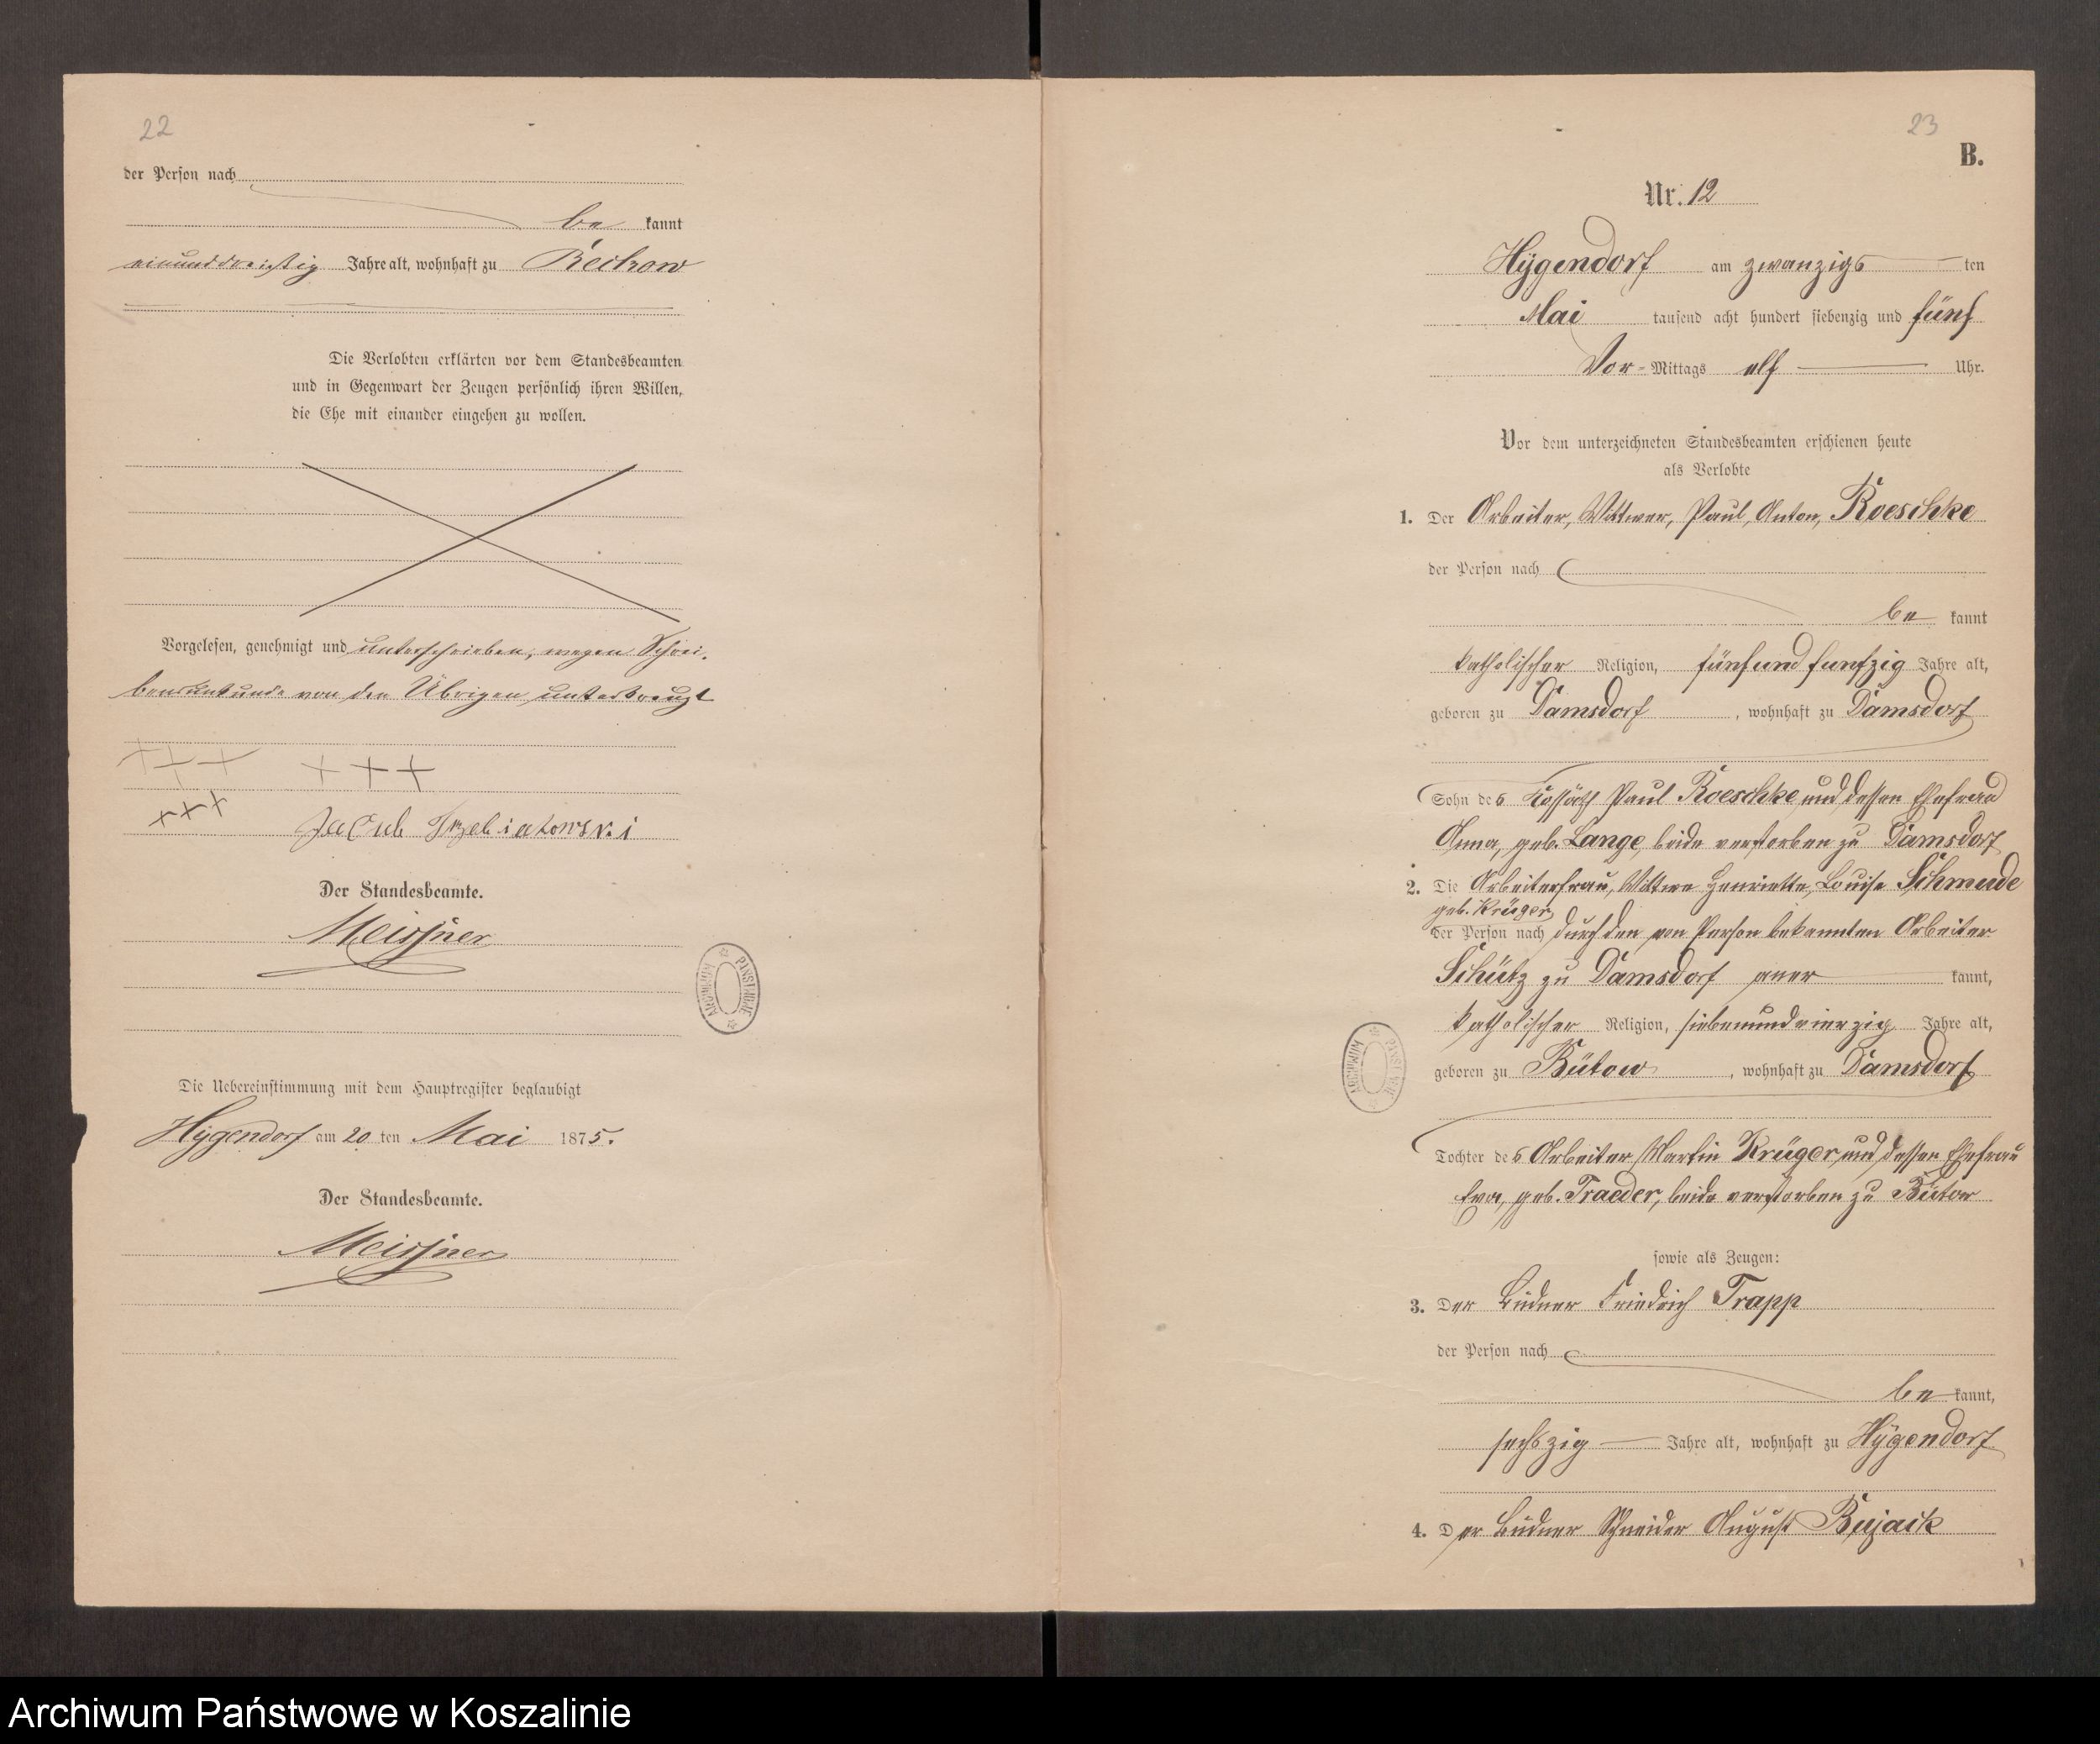 22
der Person nach
be kannt
einunddreißig Jahre alt, wohnhaft zu Reckow
Die Verlobten erklärten vor dem Standesbeamten
und in Gegenwart der Zeugen persönlich ihren Willen,
die Ehe mit einander eingehen zu wollen.
Vorgelesen, genehmigt und unterschrieben, wegen Schrei-
bensunkunde von den Übrigen unterkreuzt
+++ +++
+++ Jacob Trzebiatowski
Der Standesbeamte.
Meissner
ARCHIWUM PAŃSTWOWE
Die Uebereinstimmung mit dem Hauptregister beglaubigt
Hygendorf am 20 ten Mai 1875.
Der Standesbeamte.
Meissner
23
B.
Nr. 12
Hygendorf am zwanzigs ten
Mai tausend acht hundert siebenzig und fünf
Vor-Mittags elf Uhr.
Vor dem unterzeichneten Standesbeamten erschienen heute
als Verlobte
1. Der Arbeiter, Wittwer, Paul, Anton, Roeschke
der Person nach
be kannt
katholischer Religion, fünfund funfzig Jahre alt,
geboren zu Damsdorf, wohnhaft zu Damsdorf
Sohn des Kossäth Paul Roeschke und dessen Ehefrau
Anna, geb. Lange, beide verstorben zu Damsdorf
2. Die Arbeiterfrau, Wittwe Henriette, Louise Schmude
geb. Krüger,
der Person nach durch den von Person bekannten Arbeiter
Schütz zu Damsdorf aner kannt,
katholischer Religion, siebenundvierzig Jahre alt,
geboren zu Bütow, wohnhaft zu Damsdorf
Tochter des Arbeiter Martin Krüger und dessen Ehefrau
Eva, geb. Traeder, beide verstorben zu Bütow
ARCHIWUM PAŃSTWOWE
sowie als Zeugen:
3. Der Büdner Friedrich Trapp
der Person nach
be kannt,
sechszig Jahre alt, wohnhaft zu Hygendorf
4. Der Büdner Schneider August Bujack
Archiwum Państwowe w Koszalinie